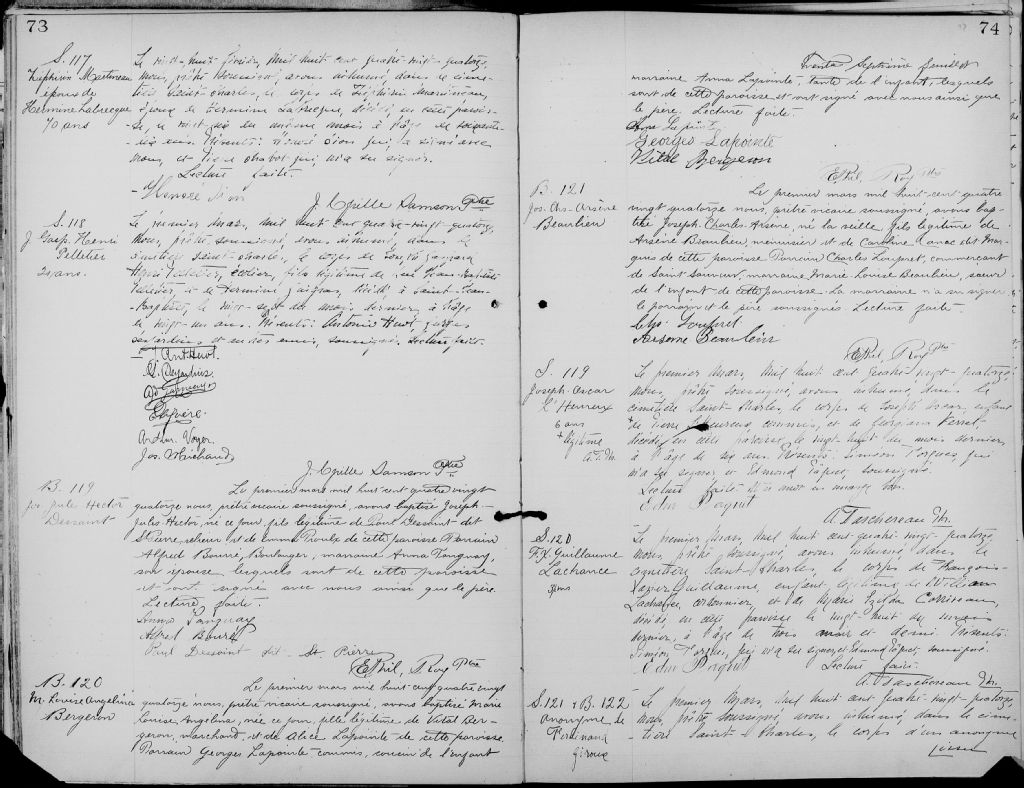 73
S. 117
Zéphirin Martineau
époux de
Hermine Labrecque
70 ans
Le vingt-huit février, mil huit cent quatre-vingt-quatorze,
nous, prêtre soussigné, avons inhumé, dans le cime-
tière Saint-Charles, le corps de Zéphirin Martineau,
époux de Hermine Labrecque, décédé, en cette parois-
se, le vingt-six du même mois à l'âge de soixante-
dix ans. Présents: Honoré Dion qui, a signé avec
nous, et chabot qui n'a su signer.
Lecture faite.
Honoré Dion
J. Opille Samson Ptre
S. 118
J. Josep. Henri
Pelletier
21 ans.
Le premier Mars, mil huit cent quatre-vingt-quatorze,
nous, prêtre, soussigné, avons inhumé, dans le
cimetière Saint-Charles, le corps de Joseph
Henri Pelletier, écolier, fils légitime de feu Jean-Baptiste
Pelletier et de décédé, à Saint-Jean-
Baptiste, le vingt-sept du mois dernier, à l'âge
de vingt-un ans. Présents: Antonio Huot,
et autres amis, soussignés. Lecture faite.
Ant Huot.
Arthur Voyer
Jos. Michaud
J. Opille Samson Ptre
B. 119
Jos. Jules Hector
Dessaint
Le premier mars mil huit cent quatre vingt
quatorze nous, prêtre vicaire soussigné, avons baptisé Joseph-
Jules-Hector, né ce jour, fils légitime de Paul Dessaint dit
St Pierre, et de Emma Proulx de cette paroisse Parrain
Alfred Bourré, Boulanger, marraine Anna Tanguay,
son épouse lesquels sont de cette paroisse
et ont signé avec nous ainsi que le père.
Lecture faite.
Anna Tanguay
Alfred Bouré
Paul Dessaint dit St. Pierre
E Phil. Roy Ptre
B. 120
M. Louise Angelina
Bergeron
Le premier mars mil huit cent quatre vingt
quatorze nous, prêtre vicaire soussigné, avons baptisé Marie
Louise Angelina, née ce jour, fille légitime de Vital Ber-
geron, marchand, et de Alice Lapointe de cette paroisse.
Parrain Georges Lapointe commis, cousin de l'enfant
74
Trente Septième feuillet
marraine Anna Lapointe, tante de l'enfant, lesquels
sont de cette paroisse et ont signé avec nous ainsi que
le père. Lecture faite.
Anna Lapointe
Georges Lapointe
Vital Bergeron
E Phil. Roy Ptre
B. 121
Jos. Chs-Arsène
Beaulieu
Le premier mars mil huit-cent quatre
vingt quatorze nous, prêtre vicaire soussigné, avons bap-
tisé Joseph Charles Arsène, né la veille fils légitime de
Arsène Beaulieu, menuisier et de Caroline
de cette paroisse Parrain Charles commerçant
de Saint Sauveur, marraine Marie Louise Beaulieu, sœur
de l'enfant de cette paroisse. La marraine n'a su signer
le parrain et le père soussignés. Lecture faite.
Arsène Beaulieu
E Phil. Roy Ptre
S. 119
Joseph Oscar
L'Heureux
6 ans
+ légitime
A. T. Ptr.
Le premier Mars, mil huit cent quatre vingt quatorze
nous, prêtre soussigné, avons inhumé, dans le
cimetière Saint-Charles, le corps de Joseph Oscar, enfant
+ de Pierre L'Heureux, commis, et de Georgiana Verret
décédé, en cette paroisse, le vingt-huit du mois dernier,
à l'âge de six ans. Présents: Simeon Forgues, qui
n'a su signer et Edmond Paquet, soussigné.
Lecture faite. Un mot en marge bon.
Edm Paquet
A. Taschereau Ptr.
S. 120
F. X. Guillaume
Lachance
Le premier Mars, mil huit cent quatre vingt-quatorze
nous, prêtre soussigné, avons inhumé, dans le
cimetière Saint-Charles, le corps de François-
Xavier Guillaume, enfant légitime de William
Lachance, cordonnier, et de Marie Corriveau,
décédé, en cette paroisse le vingt-huit du mois
dernier, à l'âge de trois et demi. Présents:
Simeon Forgues, qui n'a su signer, et Edmond Paquet, soussigné.
Edm Paquet Lecture faite.
A. Taschereau Ptr.
S. 121 & B. 122
anonyme de
Ferdinand
Giroux
Le premier Mars, mil huit cent quatre-vingt-quatorze,
nous, prêtre soussigné, avons inhumé, dans le cime-
tière Saint-Charles, le corps d'un anonyme